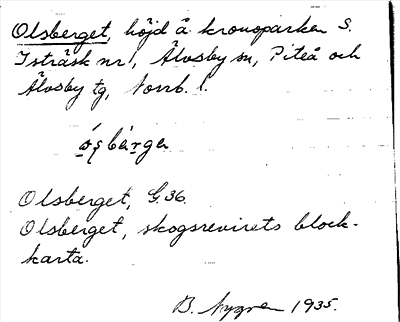 Olsberget, höjd å kronoparken S.
Isträsk nr 1, Älvsby sn, Piteå och
Älvsby tg, Norrb. l.
Olsberget, G. 36.
Olsberget, skogsrevirets block-
karta.
B. Nygren 1935.